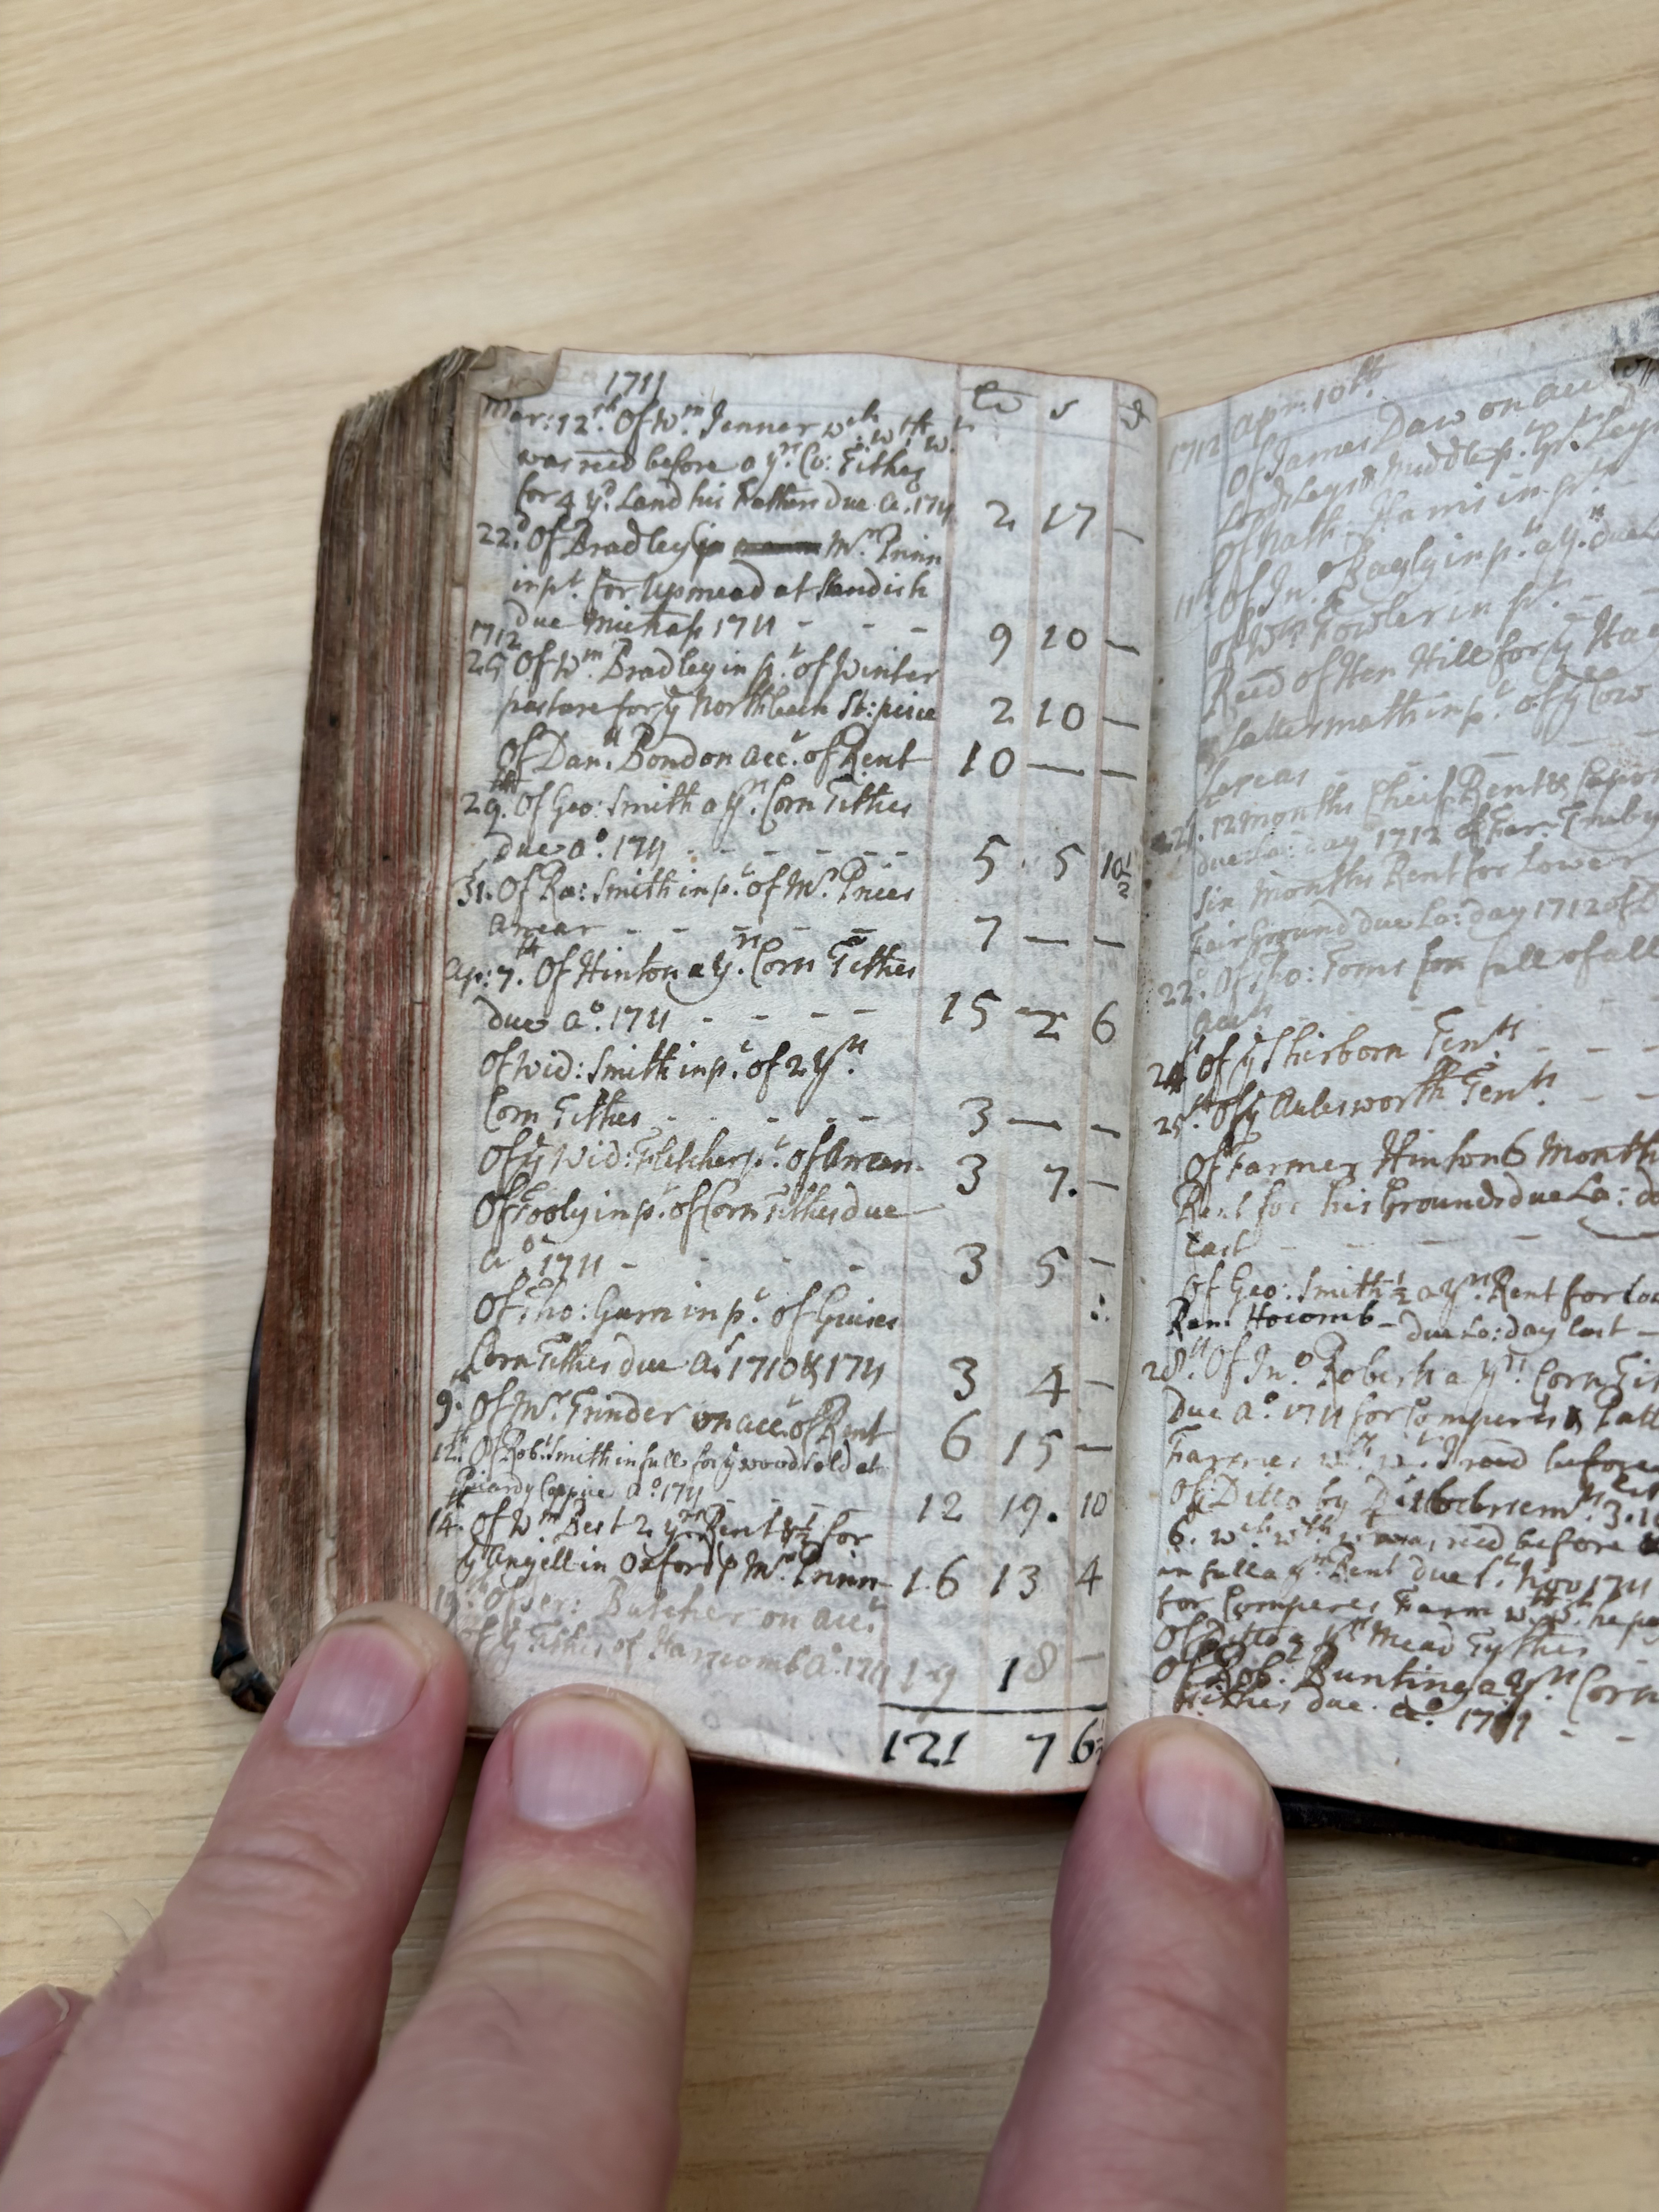 1711
Mar: 12th. Of Wm. Jenner wch wth wt.
was recd before a yrs. Co: Tithes
for 4 yd. Land his Fathers due Ao. 1711 2 17 —
22d. Of Bradley Mr. Prinn
in pt. for Upmead at Standish
due Michas 1711 - - - 9 10 —
1712
25 Of Wm. Bradley in pt. of Winter
pasture for ye North St: peice 2 10 —
Of Danll. Bond on Acct. of Rent 10 — —
29th. Of Geo: Smith a yrs. Corn Tithes
due Ao. 1711 - - - - - - 5 5 10½
31. Of Ra: Smith in pt. of Mr. Prices
Arrear - - - - - 7 — —
Ap: 7th. Of Hinton a yrs. Corn Tithes
due Ao. 1711 - - - - 15 2 6
Of Wid: Smith in pt. of 2 yrs.
Corn Tithes - - - - - 3 — —
Of ye Wid: Fletcher pt. of Arrears 3 7. —
Of Tooly in pt. of Corn Tithes due
Ao. 1711 - - - - 3 5 —
Of Tho: Garn in pt. of
Corn Tithes due Ao. 1710 & 1711 3 4 —
9. Of Mr. Trinder on acct. of Rent 6 15 —
12th. Of Robt. Smith in full for ye wood sold at
Coppice Ao. 1711 12 19. 10
14. Of Wm. Best 2 yrs Rent & ½ for
ye Angell in Oxford p Mr. Prinn 16 13 4
19th. Of Butcher on acct.
of ye Tithes of Ao. 1711 19 18 —
121 7 6½
1712 Apr: 10th.
Of James Daw on acc
Middle p.
Of Nath. Harris in pt.
11th. Of Jno. Bagly in pt. a y. due
Of Wm. Fowler in pt. - -
Recd of Hen Hill for ye Hay
Lattermath in pt. of ye Cow
Lereas
21. 12 months Cheif Rent &
due La: day 1712 of Far: Truby
Six Months Rent for Lower
Fair Ground due La: day 1712 of
22d. Of Tho: Toms full of all
24 Of ye Shirborn Tents. - - -
25th. Of ye Aulesworth Tents. - -
Of Farmer Hinton 6 Month
Rent for his Grounds due La: d
last - - -
Of Geo: Smith ½ a yrs. Rent for
Hocomb - due La: day last —
28th. Of Jno. Roberts a yrs. Corn Ti
Due Ao. 1711 for Comperes &
Farmes wch. wt. I recd before
Of Ditto by
6. wch. wth. wt was recd before
in full a yrs. Rent due 1st. Nov 1711
for Comperes Farm wch wt. he p
Of Ditto a yrs Mead Tythes
Of Robt. Bunting a yrs Corn
Tithes due Ao. 1711 - -